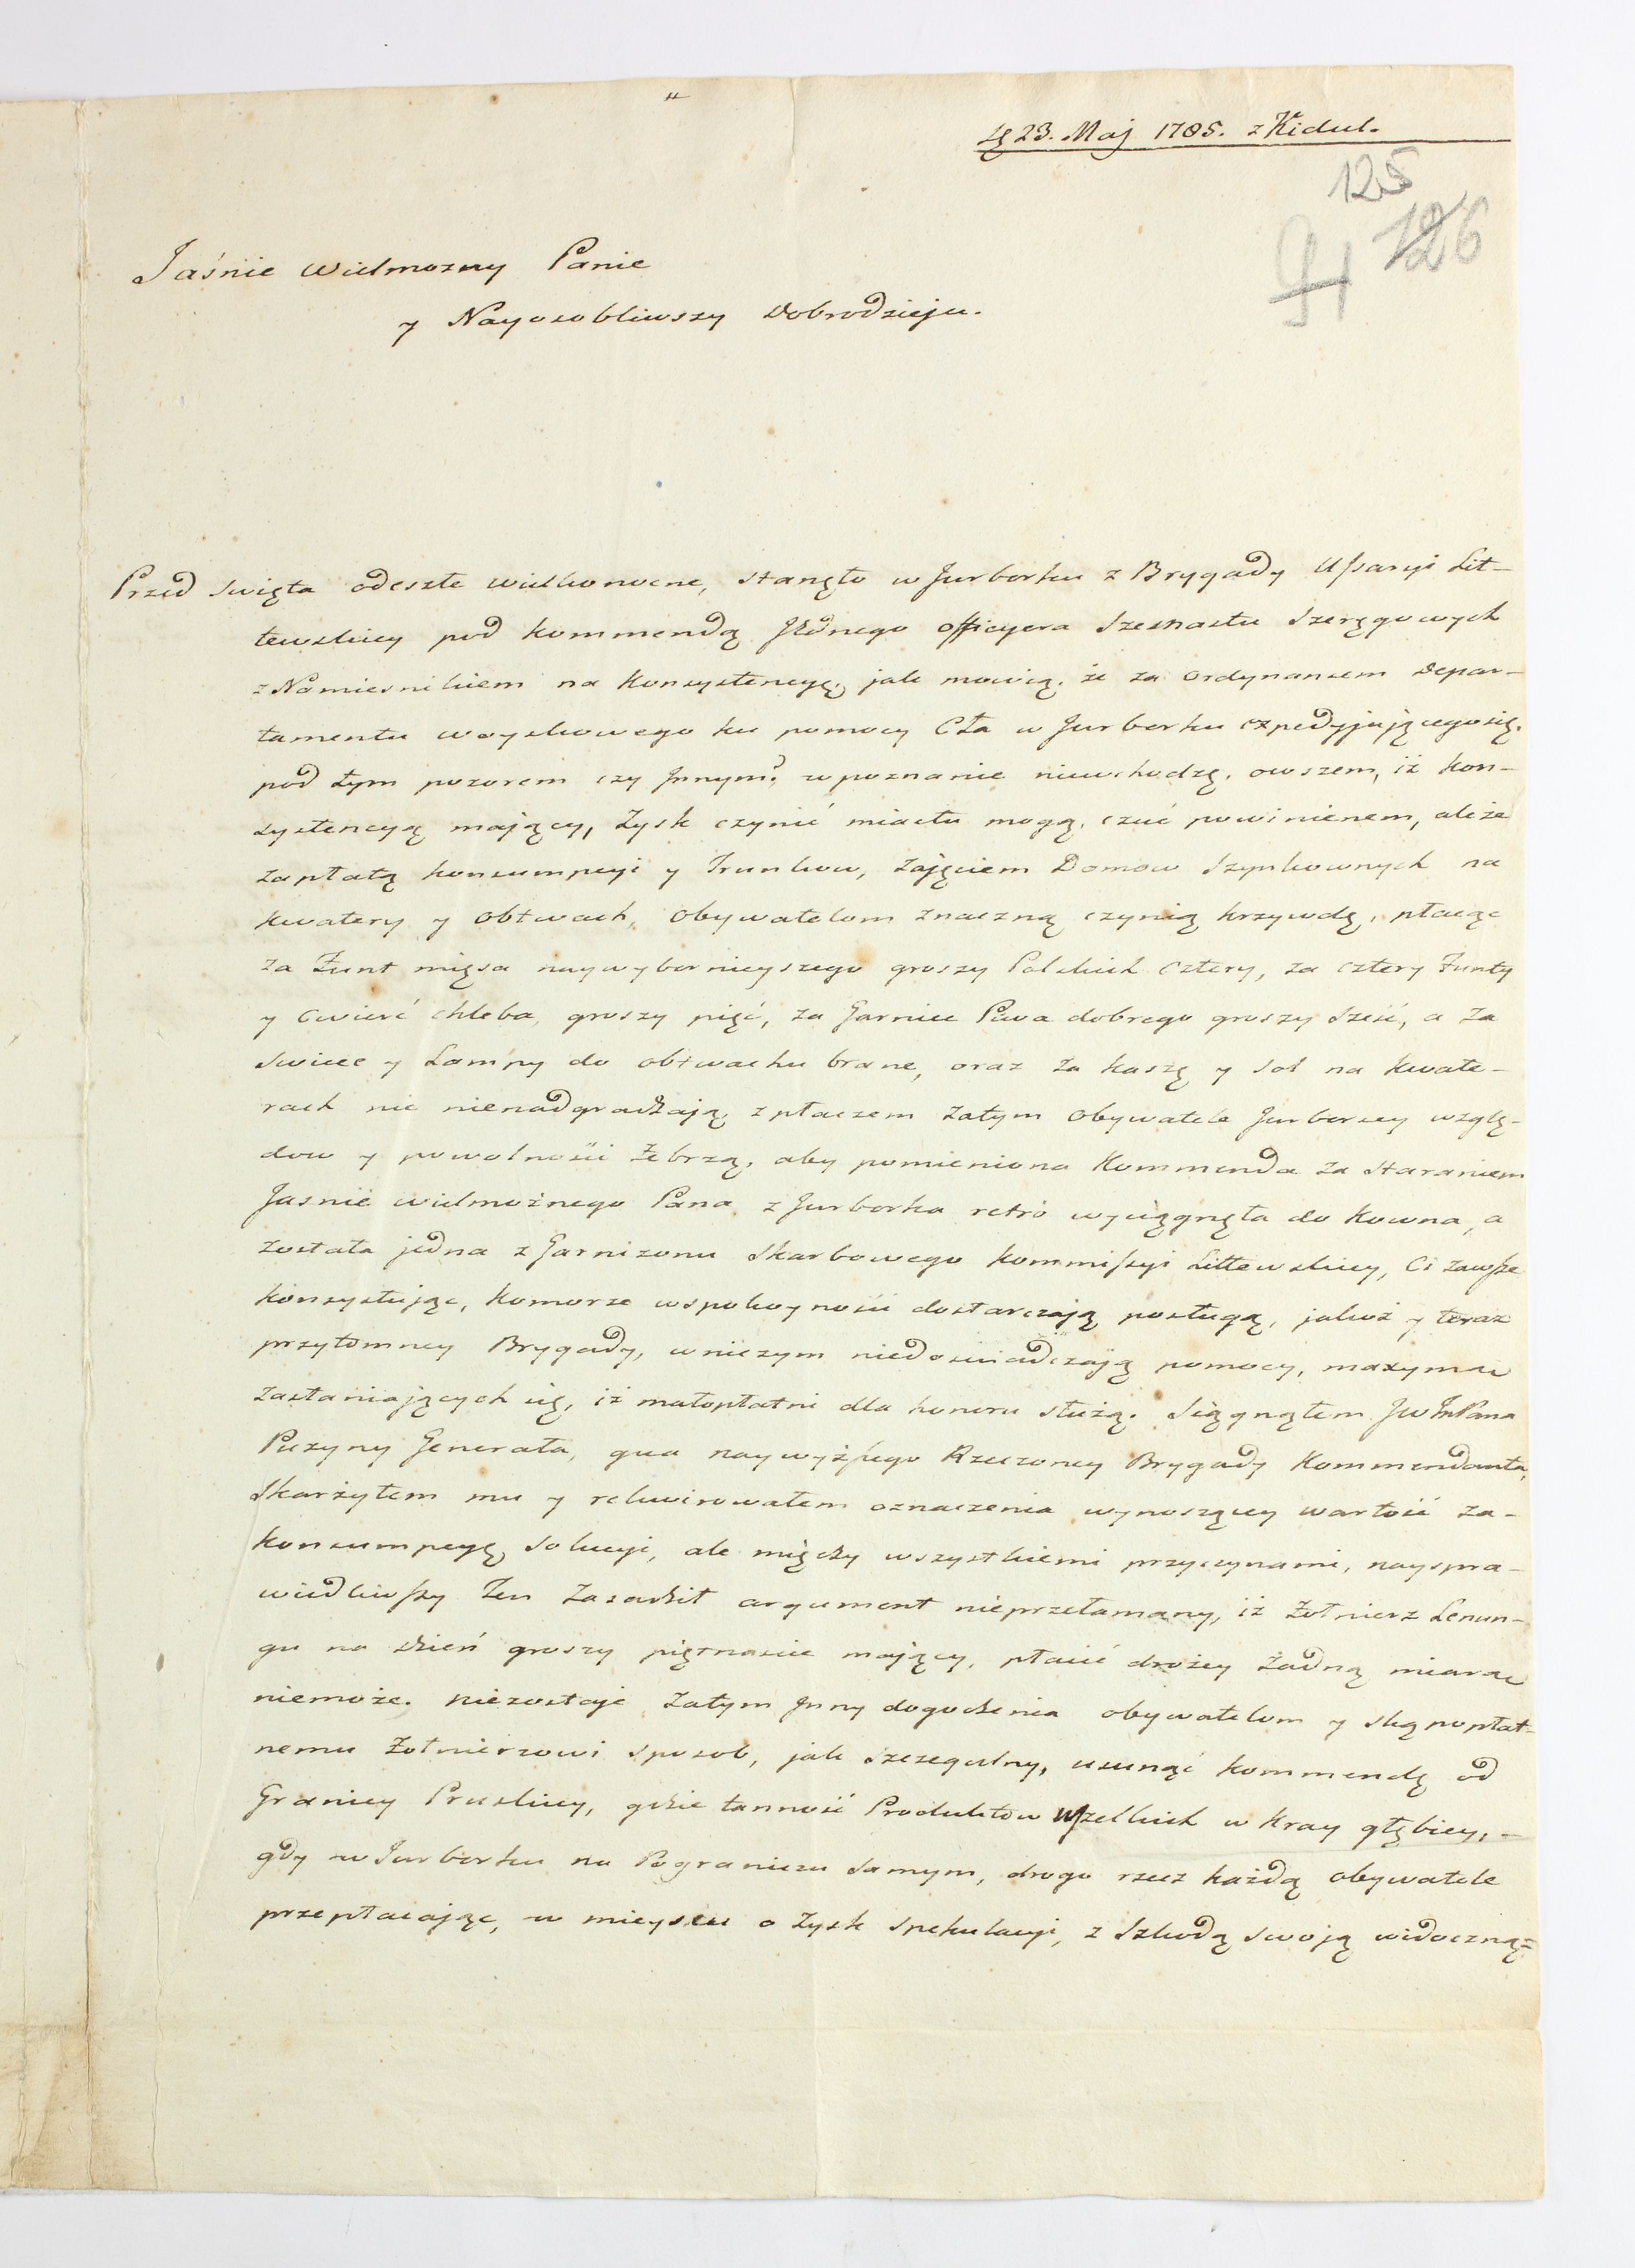 23. Maj 1785. z Kidul.
125
91 126
Jaśnie Wielmozny Panie
y Nayosobliwszy Dobrodzieju.
Przed swięta odeszłe wielkonocne, stanęło w Jurborku z Brygady Ussaryi Lit-
tewskiey pod kommendą Jednego officyera Szesnastu Szeręgowych
z Namiesnikiem na Konsystencyę, jak mowią, że za ordynansem Depar-
tamentu woyskowego ku pomocy Cła w Jurborku expedyjującego się.
pod tym pozorem czy Jnnym? w poznanie niewchodzę. owszem, iż kon-
systencyą mający, zysk czynić miastu mogą, czuć powinienem, ale że
zapłatą konsumpcyi y Trunkow, zajęciem Domow Szynkownych na
kwatery y obtwach, obywatelom znaczną czynią krzywdę, płacąc
za Funt mięsa naywybornieyszego groszy Polskich cztery, za cztery Funty
y cwierć chleba, groszy pięć, za Garniec Piwa dobrego groszy sześć, a za
swiece y Lampy do obtwachu brane, oraz za kaszę y sol na kwate-
rach nic nienadgradzają, z płaczem zatym obywatele Jurborscy wzglę-
dow y powolności żebrzą, aby pomieniona Kommenda za staraniem
Jasnie wielmożnego Pana z Jurborka retrò wyciągnęła do Kowna, a
została jedna z Garnizonu Skarbowego Kommissyi Littewskiey, Ci zawsze
konsystując, Komorze w spokoyności dostarczają posługą, jakoż y teraz
przytomney Brygady, w niczym niedoswiadczają pomocy, maxymae
zasłaniających się, iż małopłatni dla honoru służą. Siągnąłem JW JmPana
Puzyny Generała, qua naywyższego Rzeczoney Brygady Kommendanta,
Skarżyłem mu y rekwirowałem oznaczenia wynoszącey wartość za-
konsumpcyę solucyi, ale między wszystkiemi przyczynami, nayspra-
wiedliwszy ten zasadził argument nieprzełamany, iż żołnierz Lenun-
gu na dzień groszy piętnascie mający, płacić drożey żadną miarą
niemoże. niezostaje zatym Jnny dogodzenia obywatelom y skąpopłat-
nemu żołnierzowi sposob, jak szczegulny, usunąć kommendę od
Granicy Pruskiey, gdzie tanność Produktow wszelkich w kray głębiey,
gdy w Jurborku na Pograniczu samym, drogo rzecz każdą obywatele
przepłacając, w mieyscu o zysk spekulacyi, z szkodą swoją widoczną=